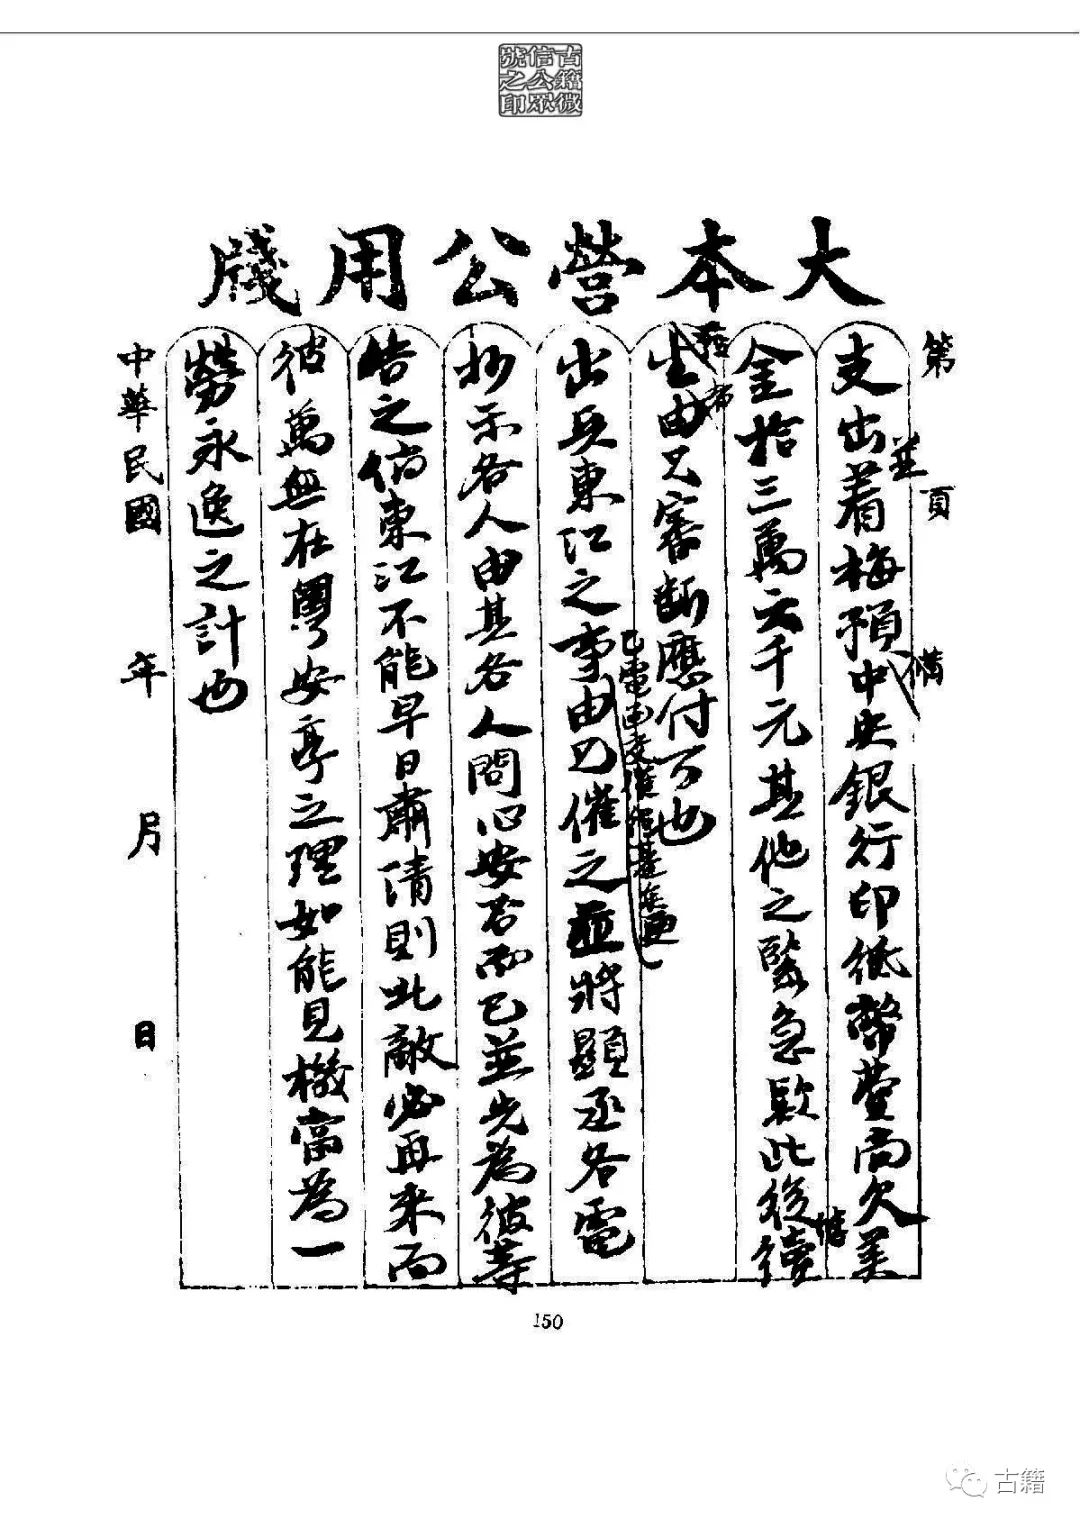 古籍微
信公眾
號之印
大本營公用牋
第 頁
並
備
支出着梅預中央銀行印紙幣費尚欠美
金拾三萬六千元其他之緊急欵此後續
發
常
生由兄審斷應付可也
已電西文催
出兵東江之事由刀催之並將顯丞各電
抄示各人由其各人問心安否而已並先為彼等
告之倘東江不能早日肅清則北敵必再来而
彼萬無在粵安享之理如能見機當為一
勞永逸之計也
中華民國 年 月 日
150
古籍